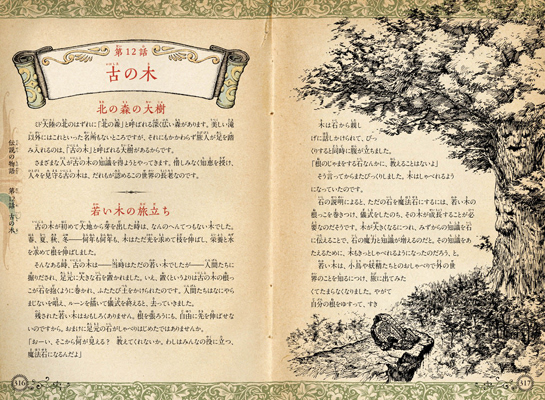 第12話
古の木
北の森の大樹
ひア大陸の北のはずれに「北の森」と呼ばれる深く広い森があります。美しい滝
以外にはこれといった名所もないところですが、それにもかかわらず旅人が足を踏
み入れるのは、「古の木」と呼ばれる大樹があるからです。
さまざまな人が古の木の知識を得ようとやってきます。惜しみなく知恵を授け、
人々を見守る古の木は、だれもが認めるこの世界の長老なのです。
若い木の旅立ち
古の木が初めて大地から芽を出した時は、なんのへんてつもない木でした。
春、夏、秋、冬――何年も何年も、木はただ光を求めて枝を伸ばし、栄養と水
を求めて根を伸ばしました。
そんなある時、古の木は――当時はただの若い木でしたが――人間たちに
掘りだされ、足元に大きな石を置かれました。いえ、置くというよりは古の木の根っ
こが石を抱くように巻かれ、ふたたび土をかけられたのです。人間たちはなにやら
まじないを唱え、ルーンを描いて儀式を終えると、去っていきました。
残された若い木はおもしろくありません。根を張ろうにも、自由に先を伸ばせな
いのですから。おまけに足元の石がしゃべりはじめたではありませんか。
「おーい、そこから何が見える？　教えてくれないか。わしはみんなの役に立つ、
魔法石になるんだよ」
伝説の物語　第12話 古の木
316
木は石から親し
げに話しかけられて、びっ
くりすると同時に腹が立ちました。
「根のじゃまをする石なんかに、教えることはないよ」
そう言ってからまたびっくりしました。木はしゃべれるよう
になっていたのです。
石の説明によると、ただの石を魔法石にするには、若い木の
根っこを巻きつけ、儀式をしたのち、その木が成長することが必
要なのだそうです。木が大きくなるにつれ、みずからの知識を石
に伝えることで、石の魔力と知識が増えるのだと。その知識をあ
たえるために、木もきっとしゃべれるようになったのだろう、と。
若い木は、小鳥や妖精たちとのおしゃべりで外の世
界のことを知るにつけ、旅に出てみた
くてたまらなくなりました。やがて
自分の根をゆすって、すき
317